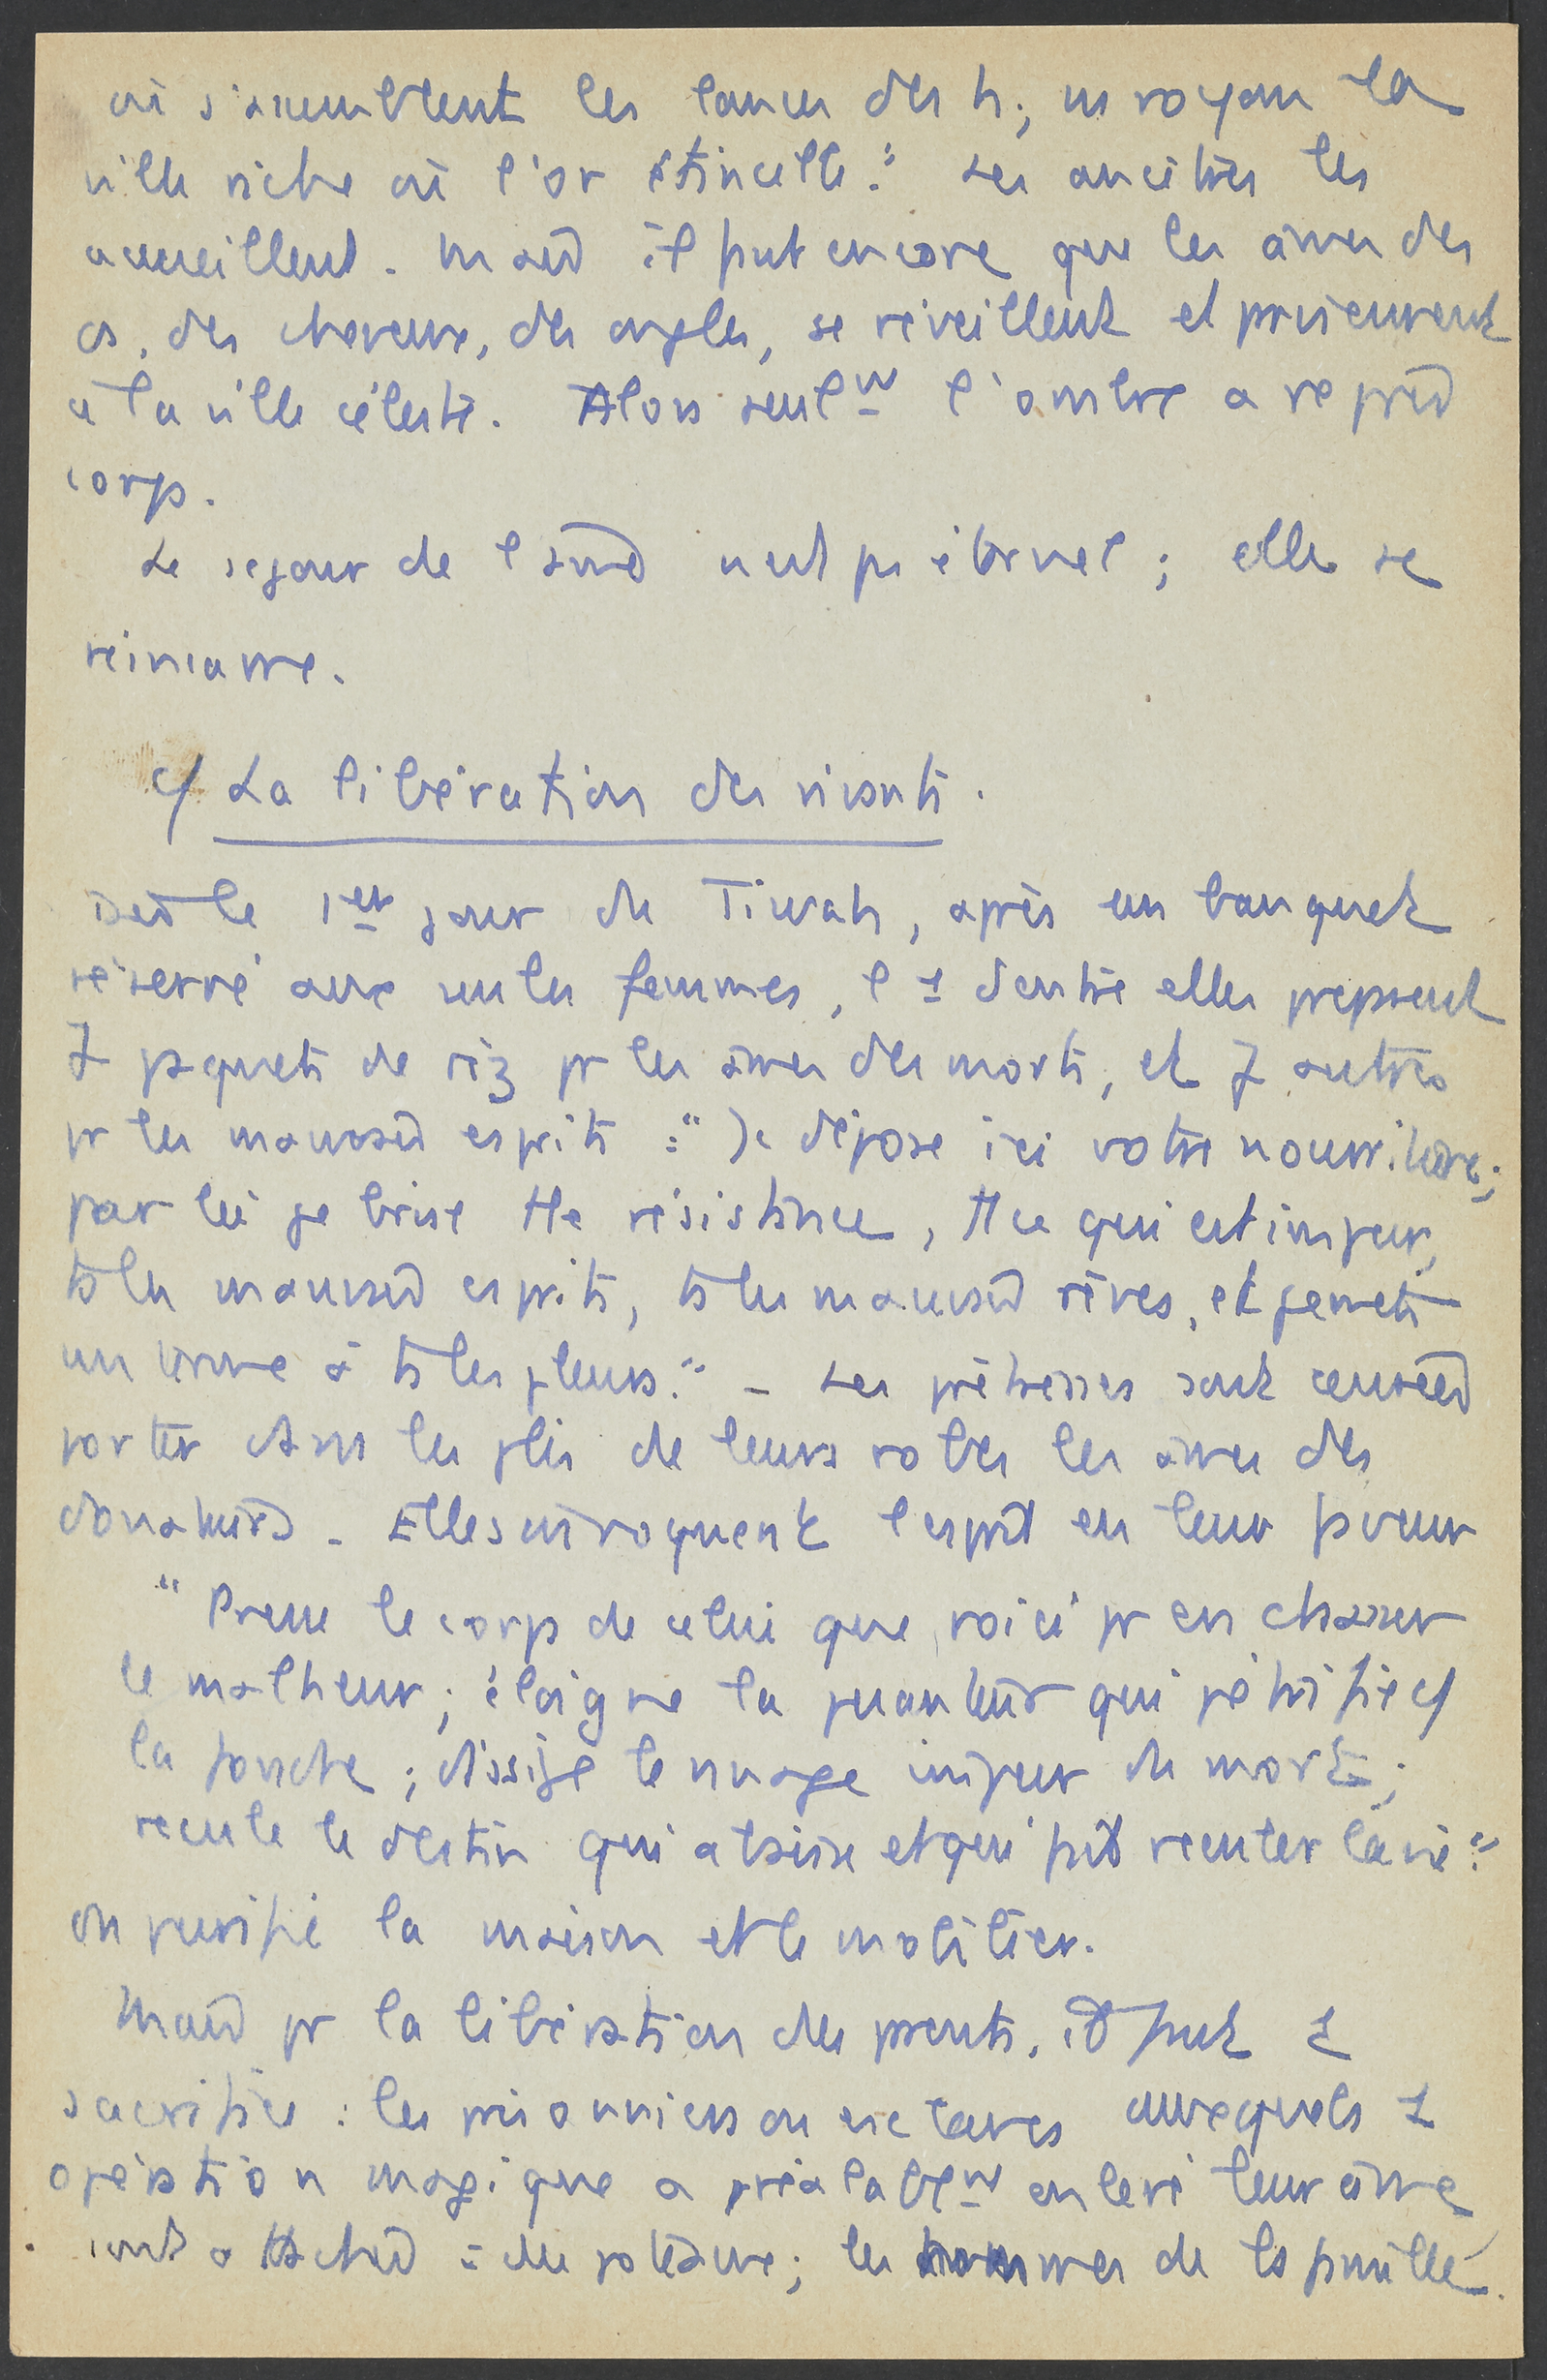 où s'assemblent les lances des h; ns voyons la
ville riche où l'or étincelle." Les ancêtres les
accueillent. Mais il faut encore que les âmes des
os, des cheveux, des ongles, se réveillent et parviennent
à la ville céleste. Alors seulm l'ombre a repris
corps.
Le séjour de l'âme n'est pas éternel; elle se
réincarne.
c/ La libération des vivants.
Dès le 1er jour du Tiwah, après un banquet
réservé aux seules femmes, l'1 d'entre elles préparent
7 paquets de riz pr les âmes des morts, et 7 autres
pr les mauvais esprits : "Je dépose ici votre nourriture;
par là je brise tte résistance, tt ce qui est impur,
ts les mauvais esprits, ts les mauvais rêves, et je mets
un terme à ts les pleurs." - Les prêtresses sont censées
porter dans les plis de leurs robes les âmes des
donateurs. Elles invoquent l'esprit en leur faveur
"Prens le corps de celui que voici pr en chasser
le malheur; éloigne la puanteur qui pétrifie c/
la foudre; dissipe le nuage impur du mort;
recule le destin qui abaisse et qui fait reculer la vie."
On purifie la maison et le mobilier.
Mais pr la libération des parents, il faut 1
sacrifice : les prisonniers ou esclaves auxquels 1
opération magique a préalablem enlevé leur âme
sont attachés à des poteaux; les hommes de la famille